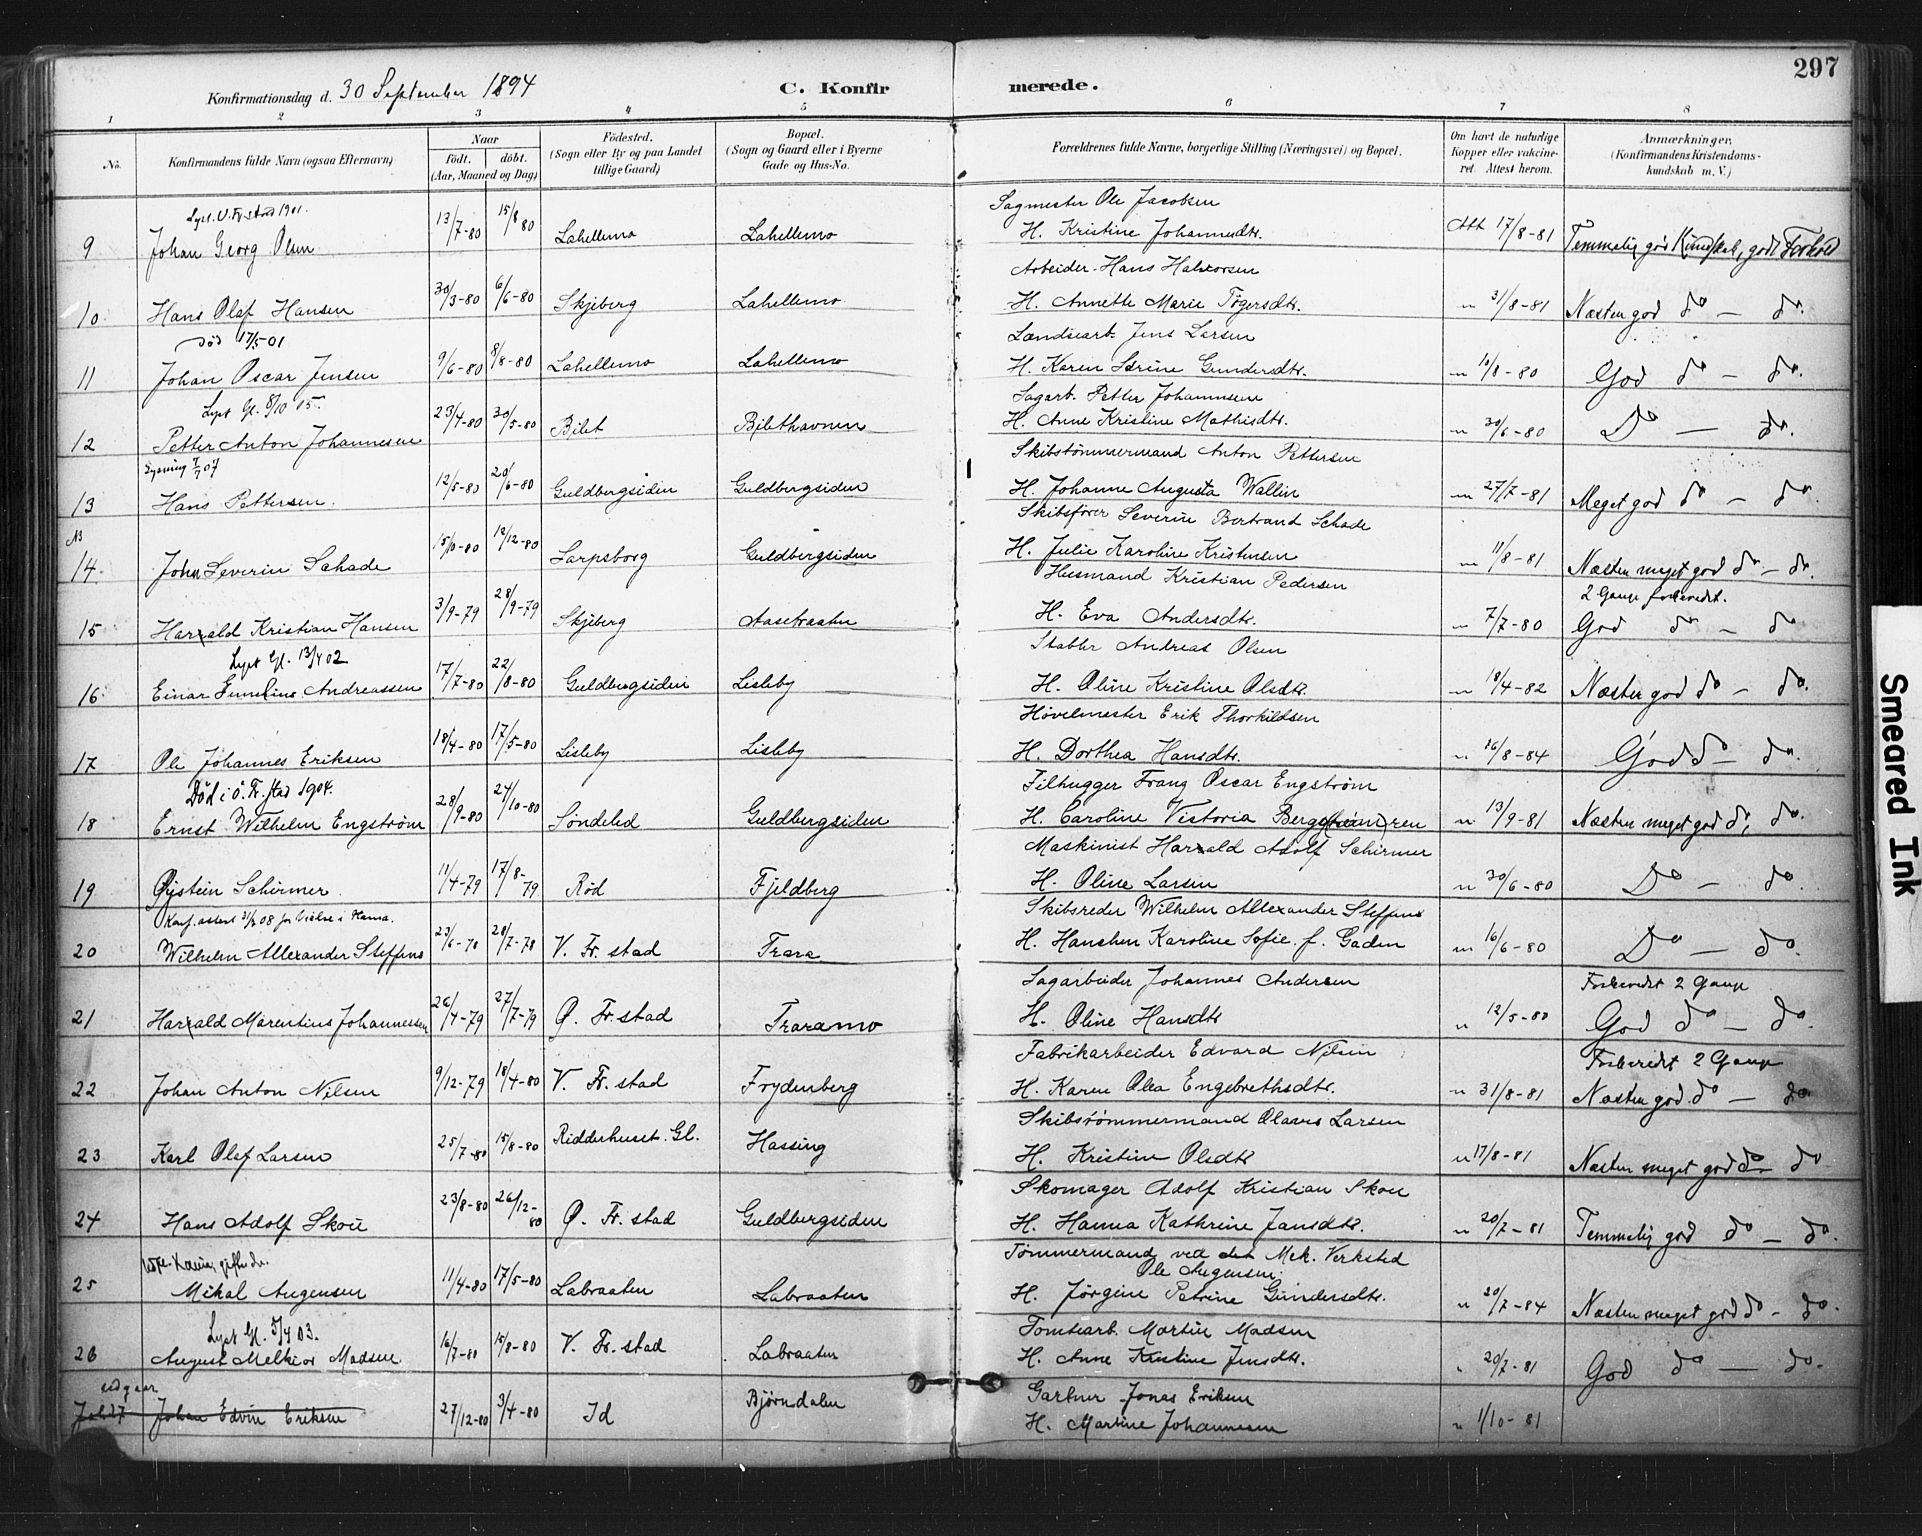 297
Konfirmationsdag d. 30 September 1894
C. Konfirmerede.
1 2 3 4 5 6 7 8
No. Konfirmandens fulde Navn (ogsaa Efternavn) Naar født. døbt. (Aar, Maaned og Dag) Fødested. (Sogn eller By og paa Landet tillige Gaard) Bopæl. (Sogn og Gaard eller i Byerne Gade og Hus-No. Forældrenes fulde Navne, borgerlige Stilling (Næringsvei) og Bopæl. Om havt de naturlige Kopper eller vaccineret. Attest herom. Anmærkninger. (Konfirmandens Kristendomskundskab m. V.)
Lyst. V. Fr.stad 1901.
9 Johan Georg Olsen 13/7-80 15/8 80 Lahellemo Lahellemo Sagmester Ole Jacobsen
H. Kristine Johannesdtr. Att 17/8-81 Temmelig god Kundskab, godt Forhold
10 Hans Olaf Hansen 30/3-80 6/6-80 Skjeberg Lahellemo Arbeider Hans Halvorsen
H. Annette Marie Tøgersdtr. " 31/8-81 Næsten god do — do.
død 17/5-01
11 Johan Oscar Jensen 9/6-80 8/8-80 Lahellemo Lahellemo Landsearb. Jens Larsen
H. Karen Serine Gundersdtr. " 10/8-80 God do — do.
Lyst Gl. 8/10 05.
12 Petter Anton Johannesen 23/4-80 30/5-80 Bilet Bilethavnen Sagarb. Petter Johannesen
H. Anne Kristine Mathisdtr. " 30/6-80 Do — do.
Lysning 7/7 07
13 Hans Pettersen. 12/5-80 20/6-80 Guldbergsiden Guldbergsiden Skibstømmermand Anton Pettersen
H. Johanne Augusta Wallin " 27/7-81 Meget god do — do.
14. John Severin Schade 15/10-80 12/12-80 Sarpsborg Guldbergsiden Skibsfører Severin Bertrand Schade
H. Julie Karoline Kristensen " 11/8-81 Næsten meget god do — do.
15 Harald Kristian Hansen 3/9-79 28/9-79 Skjeberg Aasebraaten Husmand Kristian Pedersen
H. Eva Andersdtr. " 7/7-80 2 Gange forberedt.
God do — do
Lyst Gl. 13/4 02
16 Einar Andreassen 17/7-80 22/8-80 Guldbergsiden Lisleby Stabler Andreas Olsen
H. Oline Kristine Olsdtr. " 18/4-82 Næsten god do — do.
17 Ole Johannes Eriksen 18/4-80 17/5-80 Lisleby Lisleby Høvelmester Erik Thorkildsen
H. Dorthea Hansdtr. " 16/8-84 God do — do.
Død i Ø. Fr.stad 1904.
18 Ernst Wilhelm Engstrøm 28/9-80 24/10-80 Søndeled Guldbergsiden Filhugger Frang Oscar Engstrøm
H. Caroline Victoria " 13/9-81 Næsten meget god do, do.
19 Øystein Schirmer. 11/4-79 17/8-79 Rød Fjeldberg Maskinist Harald Adolf Schirmer
H. Oline Larsen " 30/6-80 Do — do.
20 Wilhelm Allexander Steffens 23/6-78 28/7-78 V. Fr. stad Trara Skibsreder Wilhelm Allexander Steffens
H. Hanchen Karoline Sofie f. Gaden " 16/6-80 Do — do.
21 Harald Marentius Johannessen 26/4-79 27/7-79 Ø. Fr. stad Traramo Sagarbeider Johannes Andersen
H. Oline Hansdtr " 12/5-80 Forberedt 2 Gange
God do — do.
22 Johan Anton Nilsen 9/12-79 18/4-80 V. Fr. stad Frydenberg Fabrikarbeider Edvard Nilsen
H. Karen Olea Engebrethsdtr. " 31/8-81 Forberedt 2 Gange
Næsten god do — do.
23 Karl Olaf Larsen 25/7-80 15/8-80 Ridderhuset. Gl. Hassing Skibstømmermand Olaves Larsen
H. Kristine Olsdtr " 17/8-81 Næsten meget god do — do
24 Hans Adolf Skou 23/8-80 26/12-80 Ø. Fr. stad Guldbergsiden Skomager Adolf Kristian Skou
H. Hanna Kathrine Jansdtr. " 20/7-81 Temmelig god do — do.
25 Mikal Augensen 11/4-80 17/5-80 Labraaten Labraaten Tømmermand ved det Mek. Verksted
Ole Augensen.
H. Jørgine Petrine Gundersdtr. " 20/7-84 Næsten meget god do - do.
Lyst Gl. 5/4 03.
26 August Melkior Madsen 16/7-80 15/8-80 V. Fr. stad Labraaten Tomtearb. Martin Madsen
H. Anne Kristine Jensdtr. " 20/7-81 God do — do.
udgaar
Johan Edvin Eriksen 27/12-80 3/4-80 Id Bjørndalen Gartner Jonas Eriksen
H. Martine Johannesen " 1/10-81
Smeared Ink